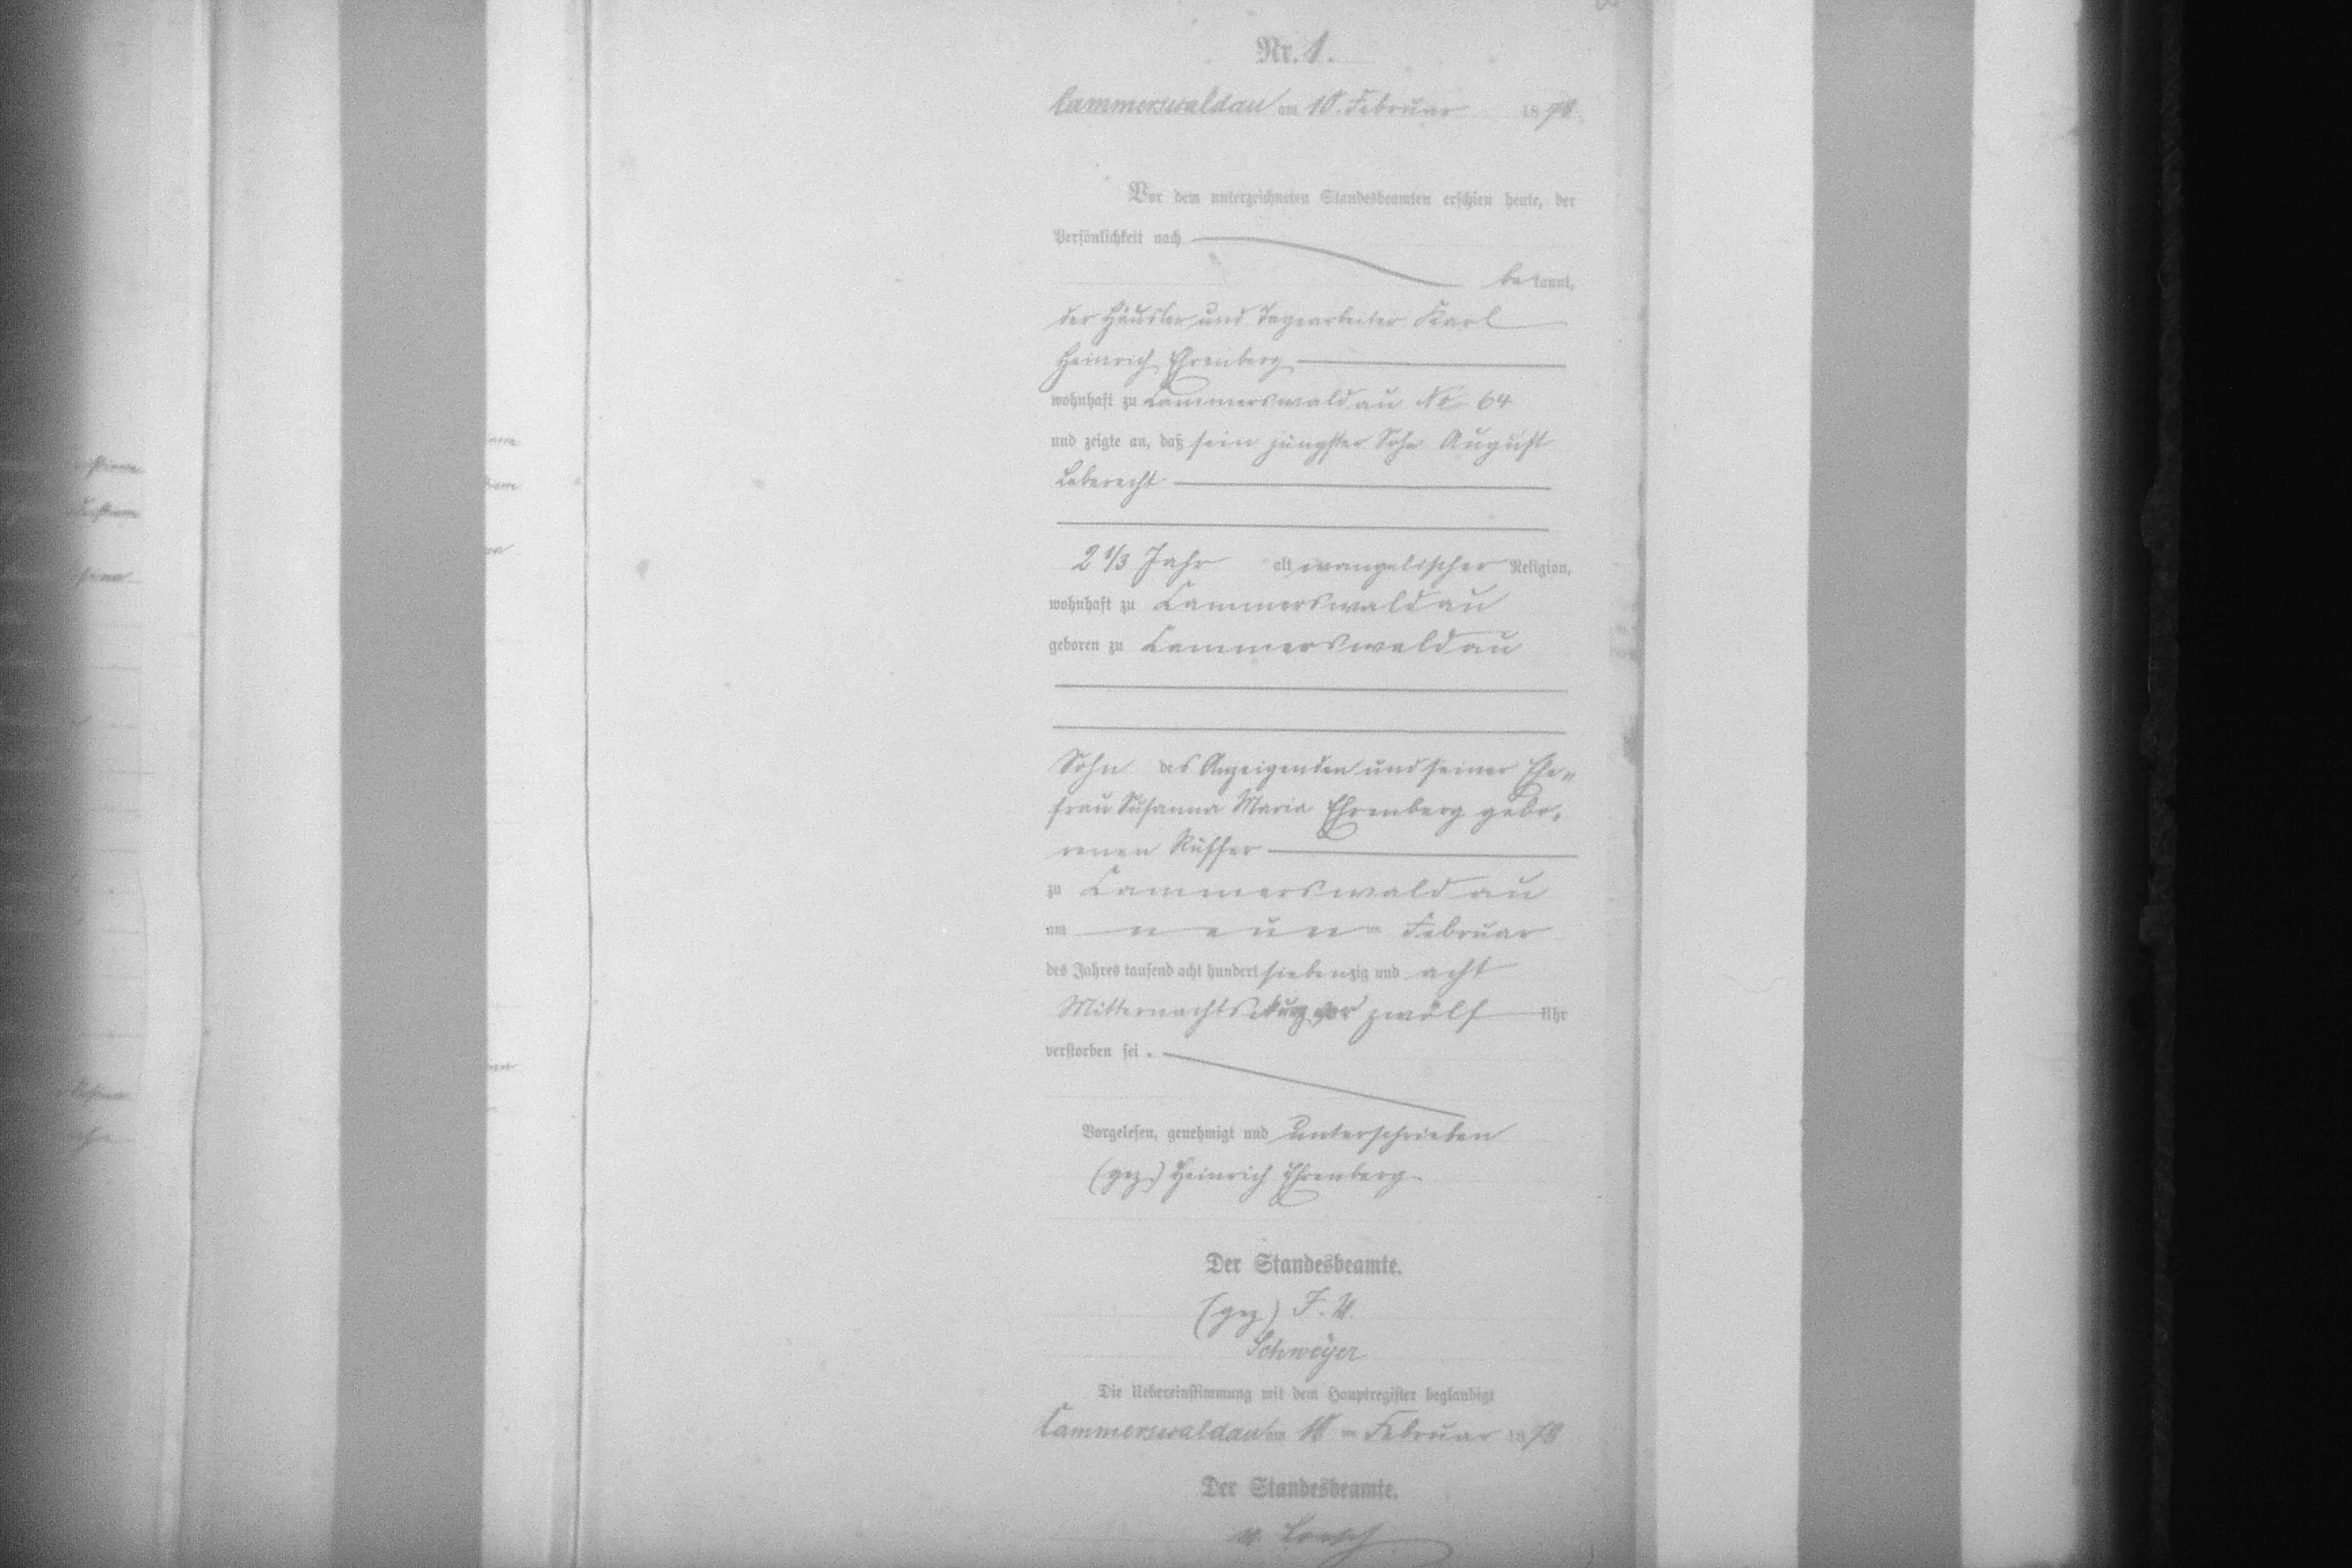 Nr. 1.
Cammerswaldau am 10. Februar 1878.
Vor dem unterzeichneten Standesbeamten erschien heute, der
Persönlichkeit nach
bekannt,
der Häusler und Tagearbeiter Karl
Heinrich Ehrenberg
wohnhaft zu Cammerswaldau No 64
und zeigte an, daß sein jüngster Sohn August
Leberecht
2 1/3 Jahr alt evangelischer Religion,
wohnhaft zu Cammerswaldau
geboren zu Cammerswaldau
Sohn des Anzeigenden und seiner Ehe„
frau Susanna Maria Ehrenberg gebo„
renen Rüffer
zu Cammerswaldau
am neunten Februar
des Jahres tausend acht hundert siebenzig und acht
Mitternachts kurz vor zwölf Uhr
verstorben sei.
Vorgelesen, genehmigt und unterschrieben
(gez) Heinrich Ehrenberg
Der Standesbeamte.
(gez) F. W.
Schweyer
Die Uebereinstimmung mit dem Hauptregister beglaubigt
Cammerswaldau am 10ten Februar 1878
Der Standesbeamte.